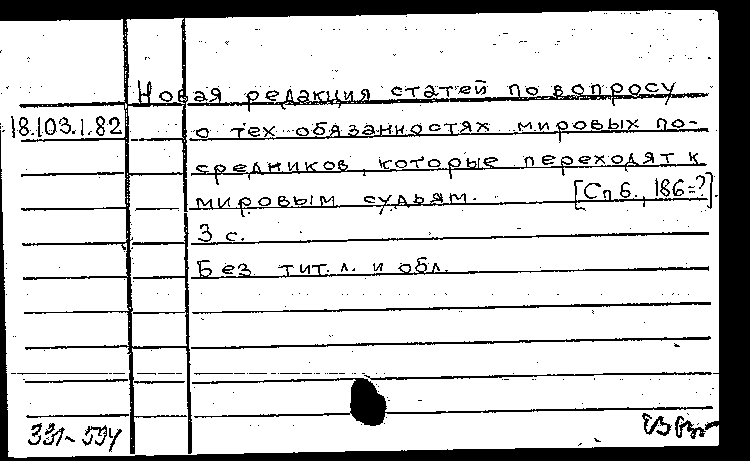 Новая редакция статей по вопросу
18.103.1.82 о тех обязанностях мировых по-
средников, которые переходят к
мировым судьям. [Спб., 186=?]
3 с.
Без тит. л. и обл.
331-594